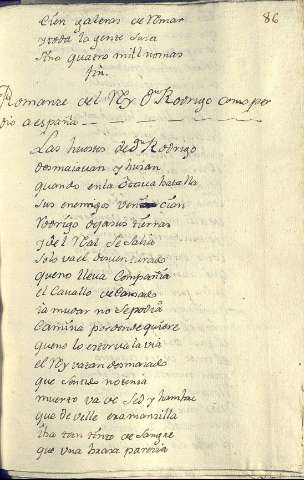 86
Cien galeras de Remar
y toda la gente suia
sino quatro mill nomas
fin.
Romanze del Rey Dn Rodrigo como per
dio a españa
Las huestes de dn Rodrigo
desmaiauan y huian
quando en la Octaua batalla
sus enemigos vencian
Rodrigo deja sus tierras
y del Real se salia
solo va el desuenturado
que no lleua Compañia
el Cauallo de Cansado
ia mudar no se podia
Camina por donde quiere
que no le estorua la via
el Rey va tan desmaiado
que sentido no tenia
muerto va de sed y hambre
que de velle era manzilla
iba tan tinto de sangre
que vna braza parezia